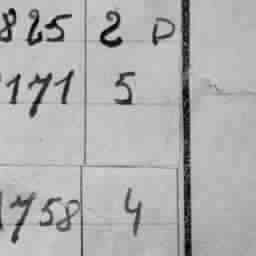 825 2 D
171 5
1758 4